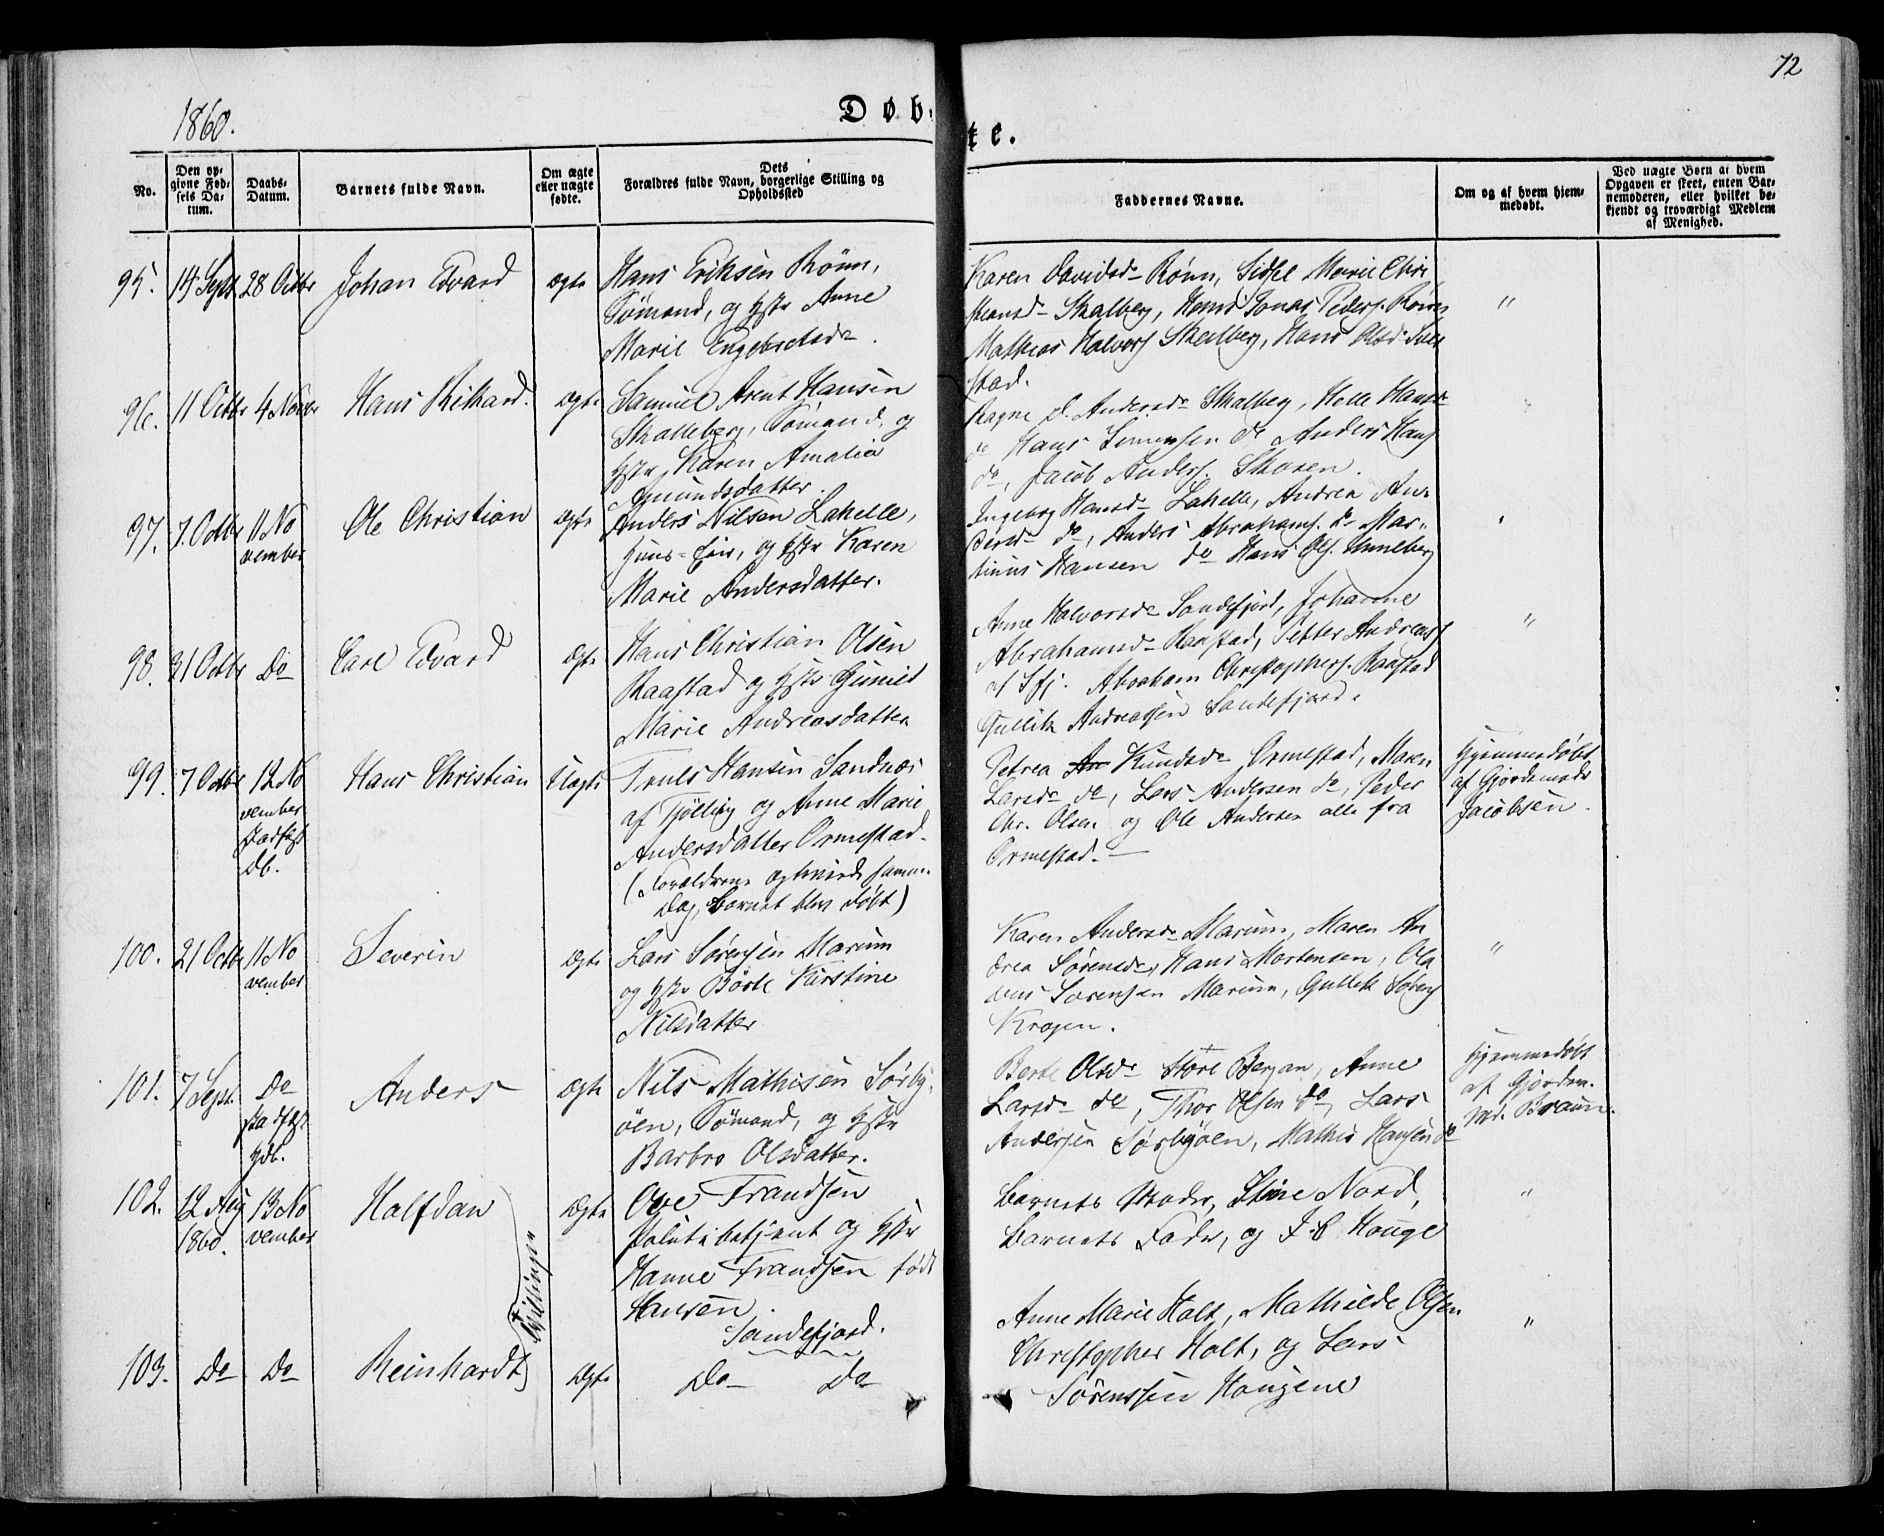 72
1860.
Døb-
te.
No.
Den op-
givne Fød-
sels Da-
tum.
Daabs-
Datum.
Barnets fulde Navn.
Om ægte
eller uægte
fødte.
Dets
Forældres fulde Navn, borgerlige Stilling og
Opholdssted
Faddernes Navne.
Om og af hvem hjem-
medøbt.
Ved uægte Børn af hvem
Opgaven er skeet, enten Bar-
nemoderen, eller hvilket be-
kjendt og troværdigt Medlem
af Menighed.
95. 14 Sept 28 Octbr Johan Edvard ægte
Hans Eriksen Rönn,
Sömand, og Hstr Anne
Marie Engebretsdr.
Karen Davidsd Rönn, Sidsel Marie Chri
stiansd Skalberg, Hans Jonas Peders. Rönn
Mathias Halvors Skalberg, Hans Olsd
stad.
"
96. 11 Octbr 4 Novbr Hans Rikard. ægte
Samuel Arent Hansen
Skalleberg, Sömand, og
Hstr Karen Amalia
Amundsdatter.
Ragne Andersd Skalberg, Helle Hansd
do Hans Simensen do Anders Hans
do, Jacob Anders. Skoven.
97. 7. Octbr 11 No
vember
Ole Christian ægte
Anders Nilsen Lahelle,
Huus-Eier, og Hstr Karen
Marie Andersdatter.
Ingeborg Hansd Lahelle, Andrea An-
dersd do, Anders Abrahams. do Mar-
tinius Hansen do Hans Ols. Unneberg
98. 21 Octbr Do Carl Edvard ægte
Hans Christian Olsen
Raastad og Hstr Gunild
Marie Andreasdatter
Anne Halvorsd Sandefjord, Johanne
Abrahamsd Raastad, Petter Andreas
af Sfj. Abraham Christophers. Raastad
Gullik Andreassen Sandefjord.
"
99. 7 Octbr 12 No
vember
Hans Christian Uægte
Truls Hansen Sandnæs
af Tjölling og Anne Marie
Andersdatter Ormestad.
(Forældrene ægteviede samme
Dag, Barnet blev døbt)
Petrea Knudsd Ormestad, Maren
Larsd do, Lars Andersen do, Peder
Chr. Olsen og Ole Andersen alle fra
Ormestad.
Hjemmedøbt
af Gjordemoder
Jacobsen.
100. 21 Octbr 11 No
vember
Severin ægte
Lars Sörensen Marum
og Hstr Börte Kirstine
Nilsdatter
Karen Andersd Marum, Maren An
drea Sörensd, Hans Mortensen, Ola
vus Sorensen Marum, Gullik
Krogen.
"
101. 7 Sept. Do
Anders ægte
Nils Mathisen Sörby
öen, Sömand, og Hstr
Barbro Olsdatter.
Berte Olsd Store Bergan, Anne
Larsd do, Thor Olsen do, Lars
Andersen Sörbyöen, Mathis Hansen do
Hjemmedøbt
af Gjordem.
Mad. Braun.
102. 12 Aug
1860.
13 No
vember
Halfdan ægte
Ove Frandsen
Politibetjent og Hstr
Hanne Frandsen født
Hansen.
Sandefjord.
Barnets Moder, Stine Nord,
Barnets Fader, og J. C Hauge
"
Tvillinger
103. Do Do Reinhardt ægte
Do Do
Anne Marie Holt, Mathilde Olsen
Christopher Holt, og Lars
Sörenssen Haugene
"